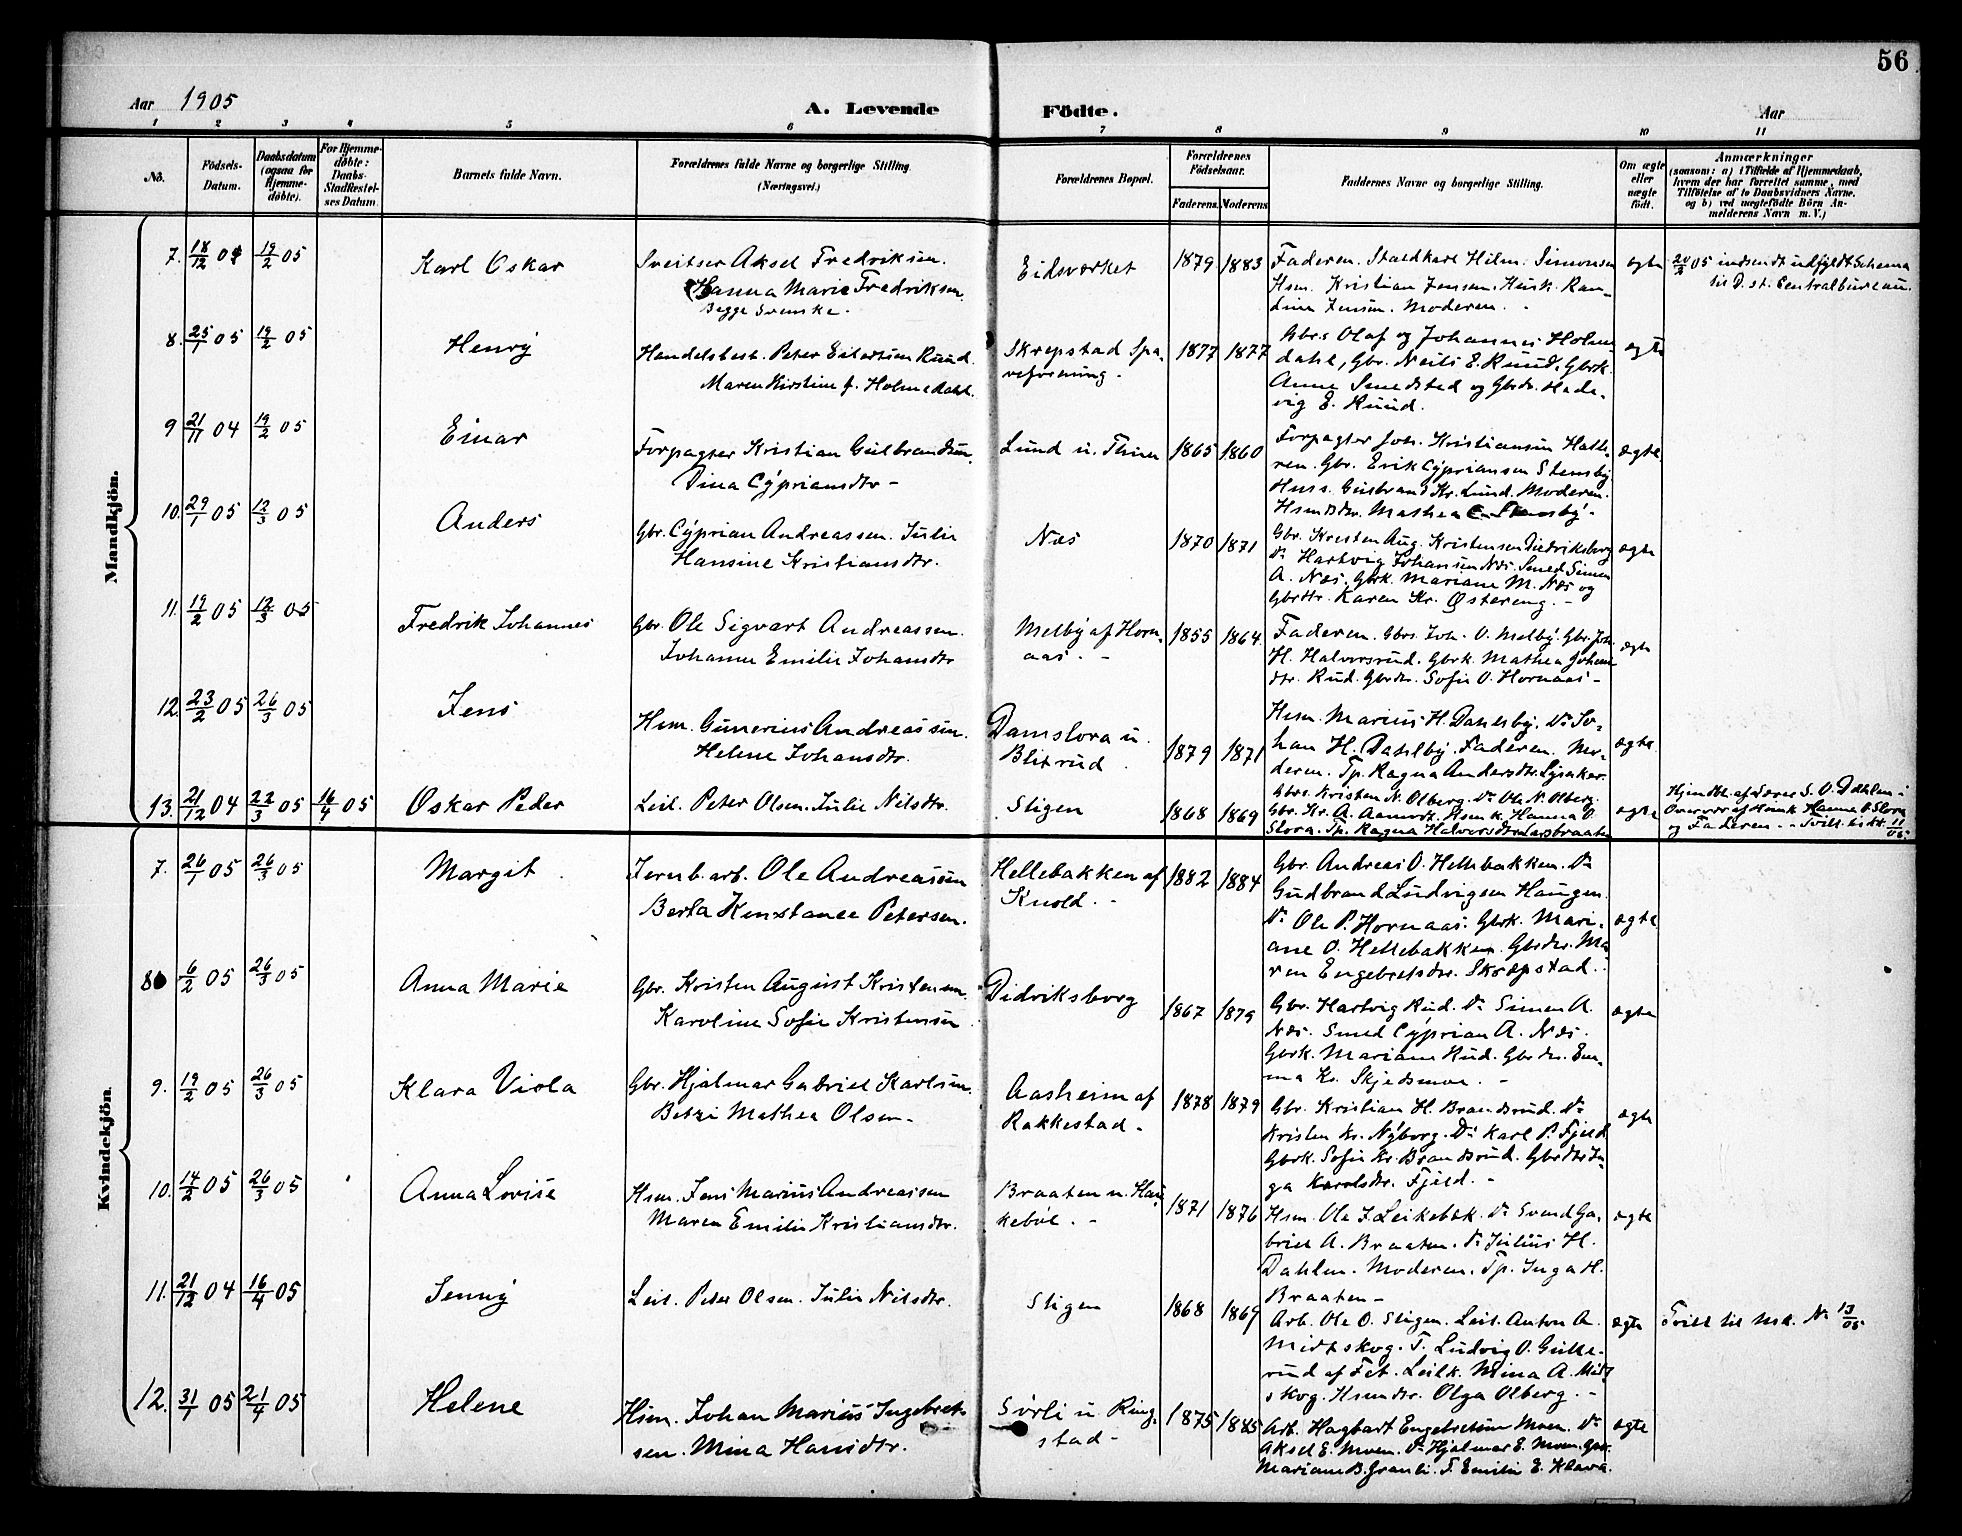 56
Aar 1905
A. Levende Födte.
Aar
1 2 3 4 5 6 7 8 9 10 11
No.
Födsels-
Datum.
Daabsdatum
(ogsaa for
Hjemme-
døbte).
For Hjemme-
døbte:
Daabs-
Stadfæstel-
ses Datum.
Barnets fulde Navn.
Forældrenes fulde Navne og borgerlige Stilling.
(Næringsvei.)
Forældrenes Bopæl.
Forældrenes
Födselsaar.
Faderens. Moderens.
Faddernes Navne og borgerlige Stilling.
Om ægte
eller
uægte
födt.
Anmærkninger
(saasom: a) i Tilfælde af Hjemmedaab,
hvem der har forrettet samme, med
Tilföielse af to Daabsvidners Navne.
og b) ved uægtefödte Börn An-
melderens Navn m.V.)
Mandkjön.
7. 18/12 04 19/2 05 Karl Oskar
Sveitser Aksel Fredriksen.
Hanna Marie Fredriksen.
Begge Svenske.
Eidsværket 1879 1883
Faderen. Staldkarl Hilm. Simonsen
Hsm. Kristian Jensen. Husk. Ran-
dine Jensen. Moderen.
ægte
20/2 05 indsendt udfyldt Schema
til D. st. Centralbureau.
8. 25/1 05 19/2 05 Henry
Handelsbest. Peter Eilertsen Ruud.
Maren Kirstine f. Holmedahl.
Skrepstad Spa-
reforening. 1877 1877
Gbr.s Olaf og Johannes Holme
dahl, Gbr. Neils E. Ruud, Gbrk.
Anne Smedstad og Gbrdr. Hade-
vig E. Ruud.
ægte
9 21/11 04 19/2 05 Einar
Forpagter Kristian Gulbrandsen.
Dina Cypriansdtr -
Lund u. Thien 1865 1860
Forpagter Joh. Kristiansen Halle-
ren. Gbr. Erik Cypriansen Stensby
Hsm s. Gulbrand Kr. Lund. Moderen.
Hsmdtr. Mathea C. Stensby.
ægte.
10. 29/1 05 12/3 05 Anders
Gbr. Cyprian Andreassen. Julie
Hansine Kristiansdtr.
Næs 1870 1871
Gbr. Kresten Aug. Kristensen Diedriksborg
Do Hartvig Johansen Næs. Smed Simen
A. Næs. Gbrk. Mariane M. Næs og
Gbrdtr. Karen Kr. Østereng. -
ægte
11. 19/2 05 12/3 05 Fredrik Johannes
Gbr. Ole Sigvart Andreassen.
Johanne Emilie Johansdtr
Melby af Horn-
aas. - 1855 1864
Faderen. Gbrs. Joh. O. Melby. Gbr. Joh.
H. Halvorsrud. Gbrk. Mathea Johan
dtr. Rud. Gbrdtr. Sofie O. Hornaas -
ægte
12. 23/2 05 26/3 05 Jens
Hsm. Gunerius Andreassen.
Helene Johansdtr.
Damslora u.
Blixrud. 1879 1871
Hsm. Marius H. Dahlby. Do Jo-
han H. Dahlby. Faderen. Mo-
deren. Tp. Ragna Andersdtr. Lysaker.
ægte.
13. 21/12 04 22/3 05 16/4 05 Oskar Peder
Leil. Peter Olsen. Julie Nilsdtr.
Stigen 1868 1869
Gbrs. Kristen N. Olberg. Do Ole N. Olberg.
Gbr. Kr. A. Aamodt. Hsmk. Hanna O.
Slora. Tp. Ragna Halvorsdtr Larsbraaten
ægte
Hjmdbt. af Lærer S. O. Dahlen i
Overvær af Hsmk. Hanna O. Slora
og Faderen. - Tvill. til Kv. 11/05.
Kvindekjön.
7. 26/1 05 26/3 05 Margit
Jernb. arb. Ole Andreassen
Berta Konstance Petersen.
Hellebakken af
Knold. - 1882 1884
Gbr. Andreas O. Hellebakken. Do
Gudbrand Ludvigsen Haugen.
Do Ole P. Hornaas. Gbrk. Mari-
ane O. Hellebakken. Gbrdtr. Ma
ren Engebretsdtr. Skrepstad.
ægte
8 6/2 05 26/3 05 Anna Marie
Gbr. Kristen August Kristensen.
Karoline Sofie Kristensen
Didriksborg 1867 1879
Gbr. Hartvig Rud. Do Simen A.
Næs. Smed Cyprian A. Næs.
Gbrk. Mariane Rud. Gbrdtr. Em-
ma Kr. Skjedsmoe. -
ægte
9. 19/2 05 26/3 05 Klara Viola
Gbr. Hjalmar Gabriel Karlsen.
Betzi Mathea Olsen -
Aasheim af
Rakkestad - 1878 1879
Gbr. Kristian H. Brandsrud. Do
Kristen Kr. Nyborg. Do Karl P. Fjeld
Gbrk. Sofie Kr. Brandsrud. Gbrdtr In-
ga Karlsdtr. Fjeld. -
ægte
10. 14/2 05 26/3 05 Anna Lovise
Hsm. Jens Marius Andreassen
Maren Emilie Kristiansdtr.
Braaten u. Hau-
kebøl. - 1871 1876
Hsm. Ole J. Leikebæk. Do Svend Ga-
briel A. Braaten. Do Julius H.
Dahlen. Moderen. Tp. Inga H.
Braaten -
ægte
11. 21/12 04 16/4 05 Jenny
Leil. Peter Olsen. Julie Nilsdtr.
Stigen 1868 1869
Arb. Ole O. Stigen. Leil. Anton A.
Midtskog. T. Ludvig O. Gulle-
rud af Fet. Leilk. Mina A. Midt
skog. Hsmdtr. Olga Olberg. -
ægte
Tvill til Mk. No 13/05
12. 31/1 05 21/4 05 Helene
Hsm. Johan Marius Ingebret-
sen. Mina Hansdtr.
Sörli u. Ring-
stad - 1875 1885
Arb. Hagbart Engebretsen Moen. Do
Aksel E. Moen. Do Hjalmar E. Moen. Gbr.
Mariane B. Granli. T. Emilie E. Klava.
ægte